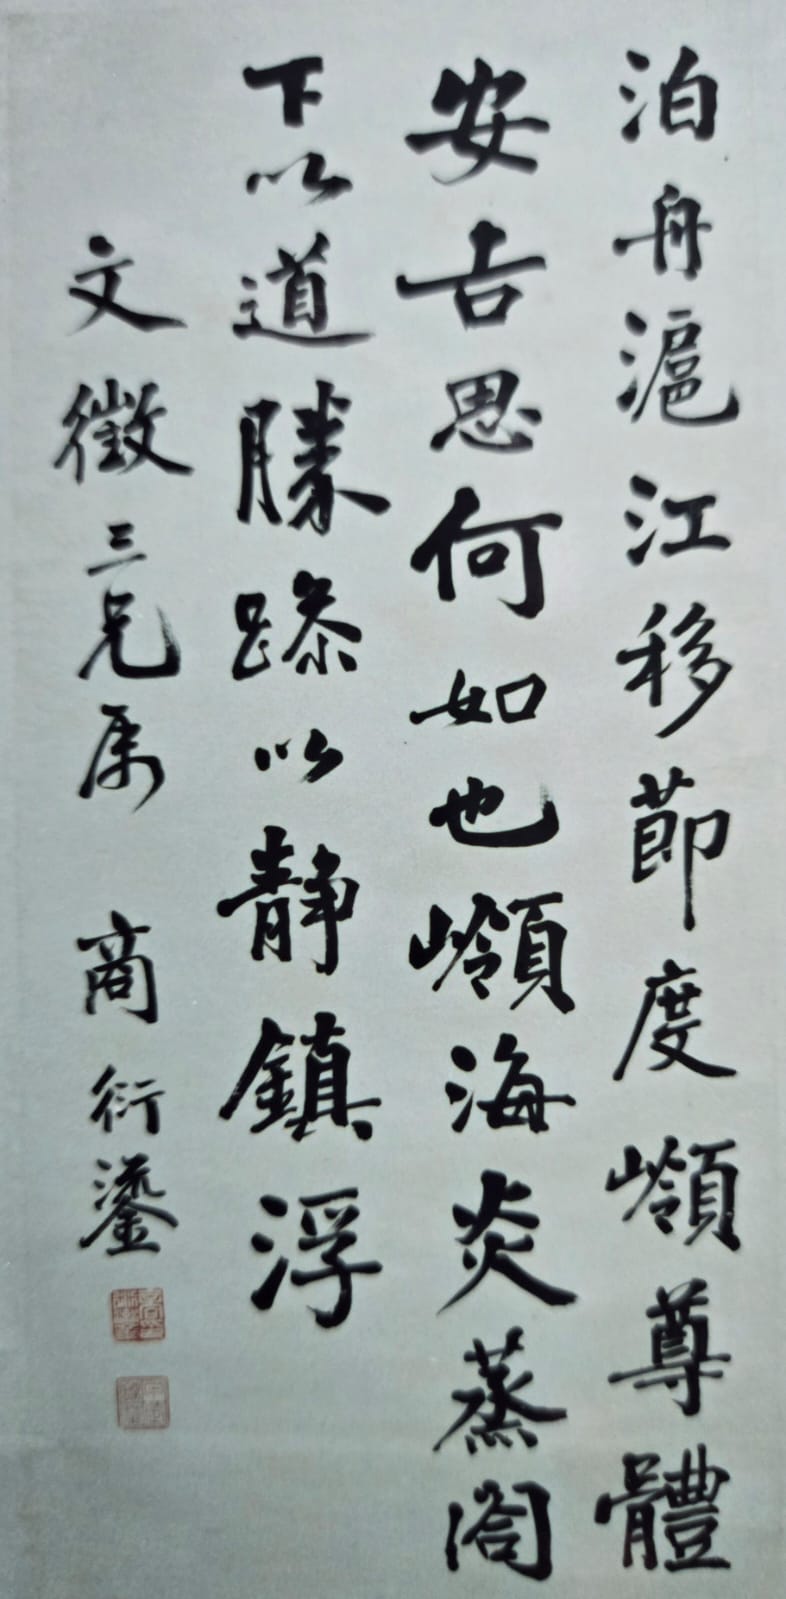 泊舟滬江移節度嶺尊體
安吉思何如也嶺海炎蒸閤
下以道勝躁以靜鎮浮
文徵三兄屬 商衍鎏